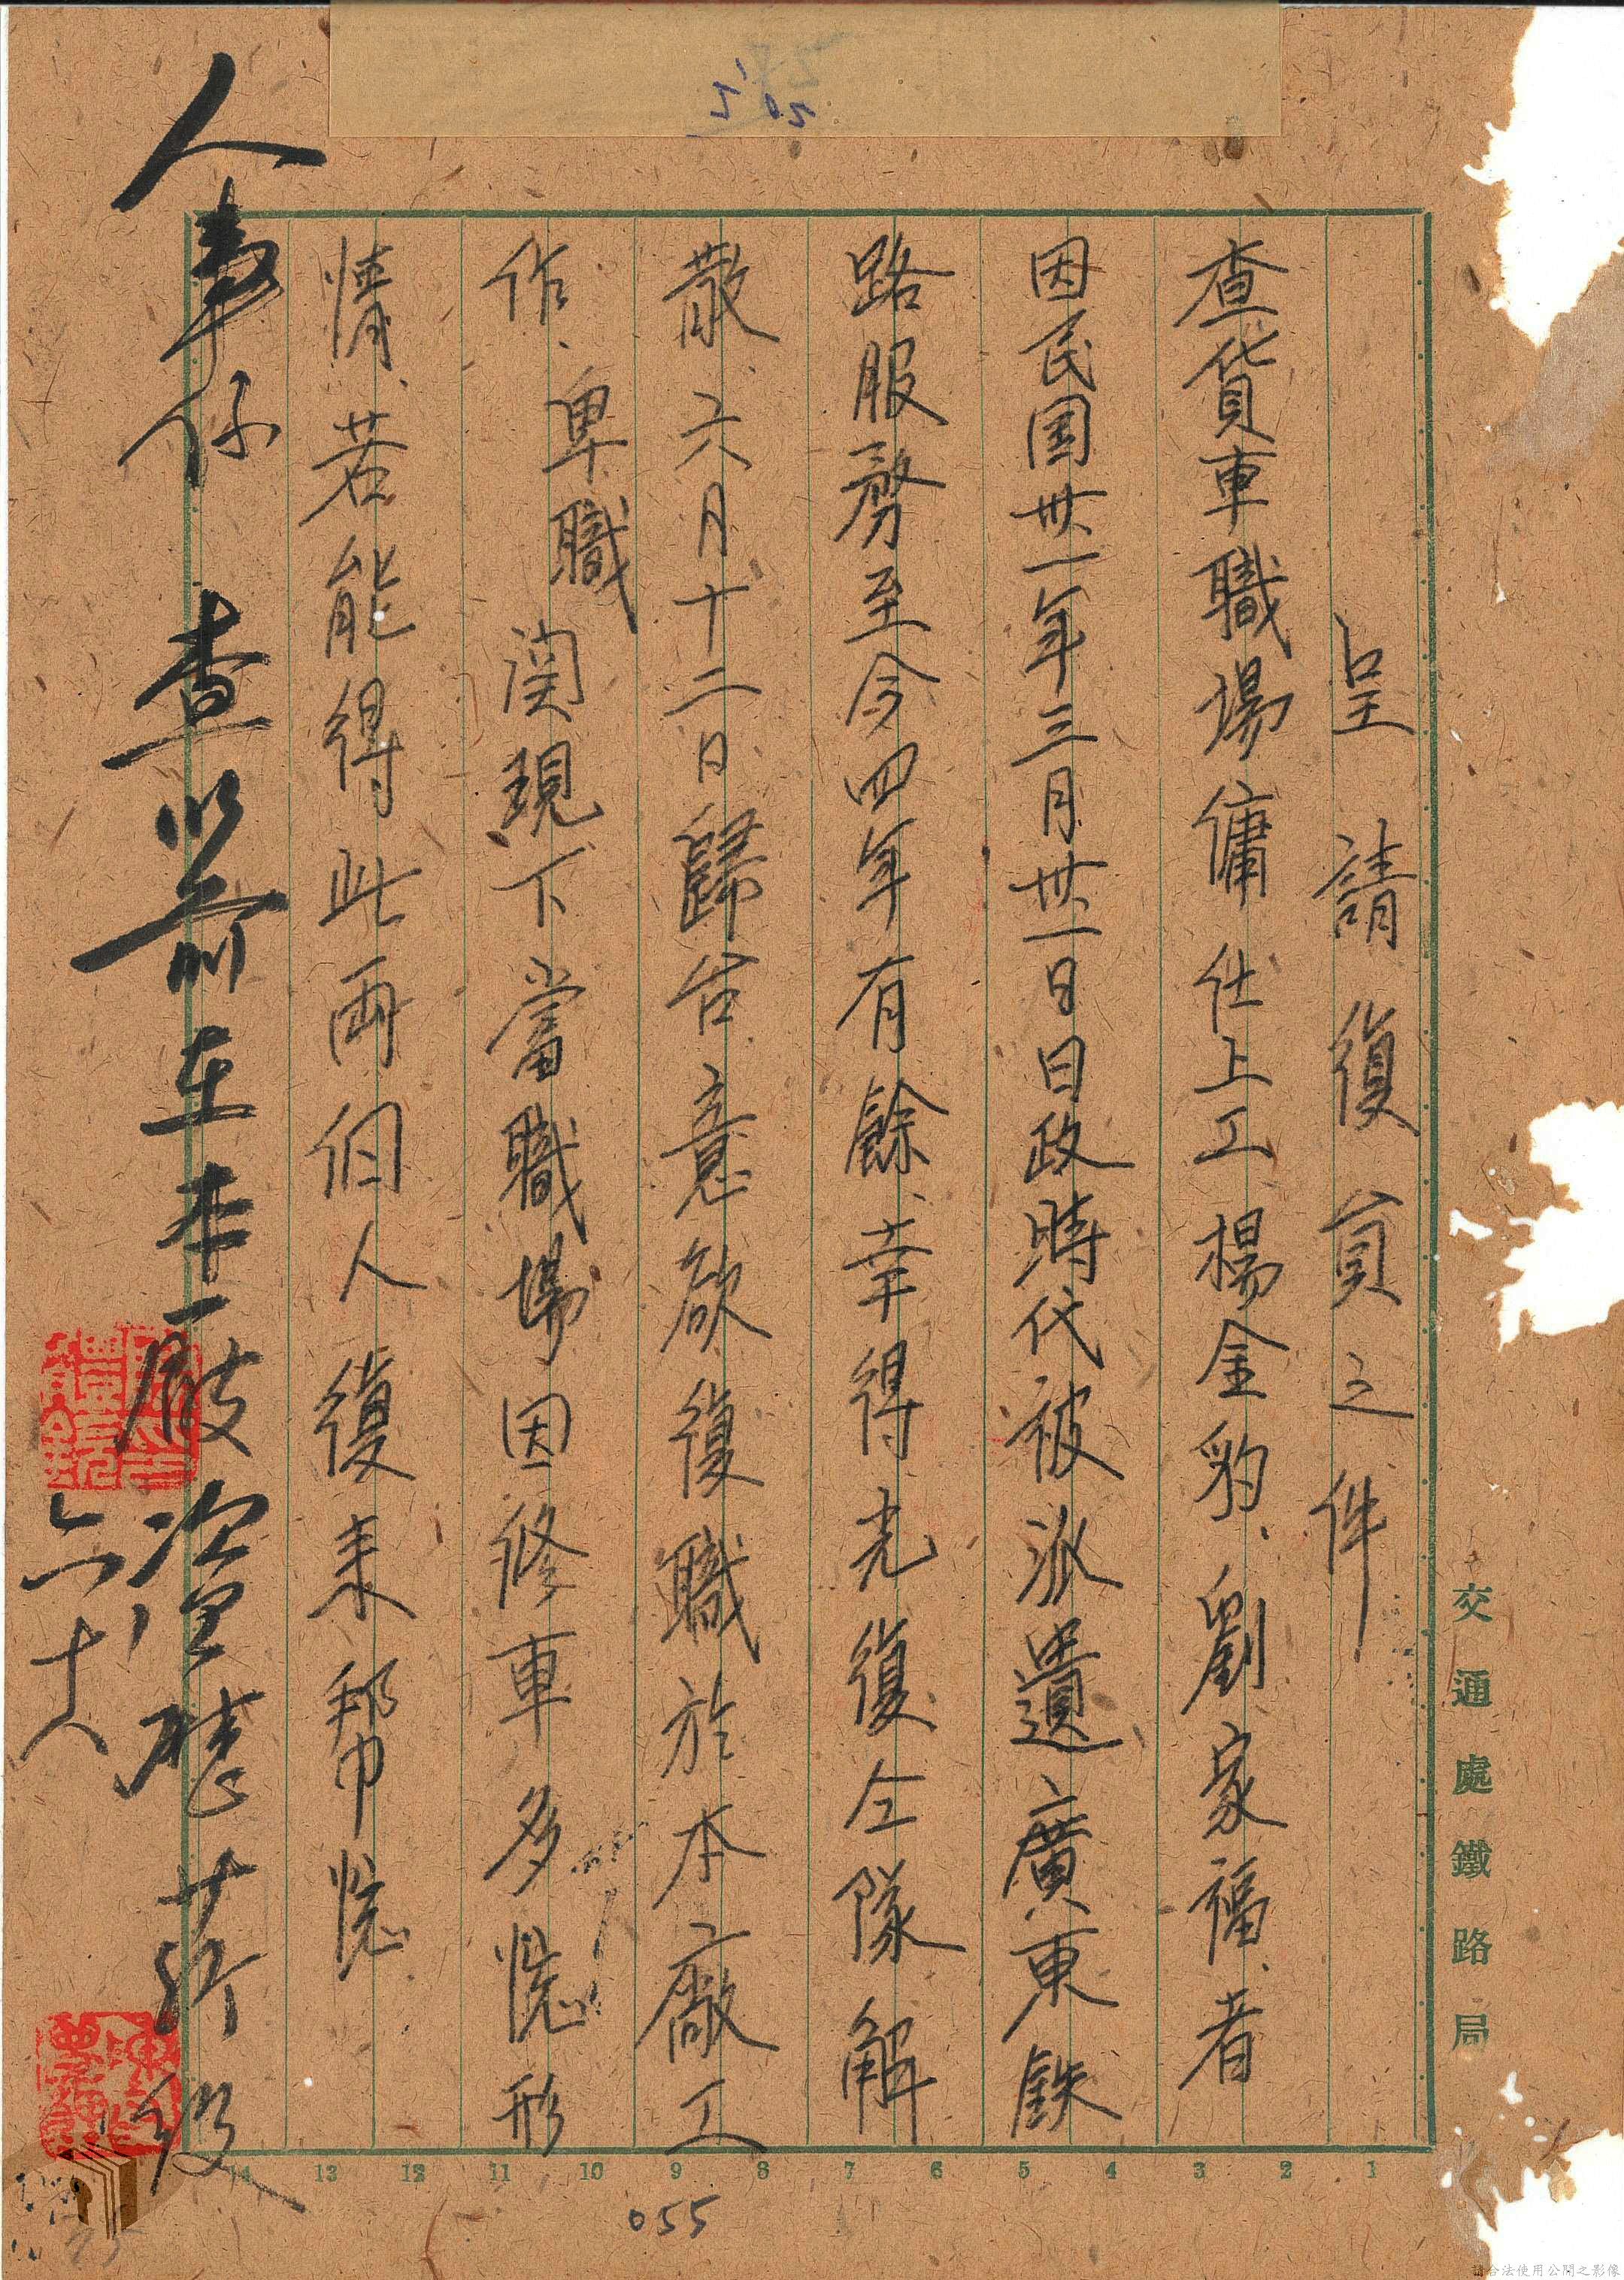 呈請復員之件
查貨車職場傭仕上工楊金豹、劉家福、者
因民国卅一年三月卅一日日政時代被派遺廣東鉄
路服務至今四年有餘、幸得光復仝隊解
散、六月十二日歸台意欲復職於本廠工
作、卑職関現下當職場因修車多慌形
情、若能得此両個人復来幫忙
人事係 查以前在本廠
六十八
交通處鐵路局
1 2 3 4 5 6 7 8 9 10 11 12 13 14
055
請合法使用公開之影像